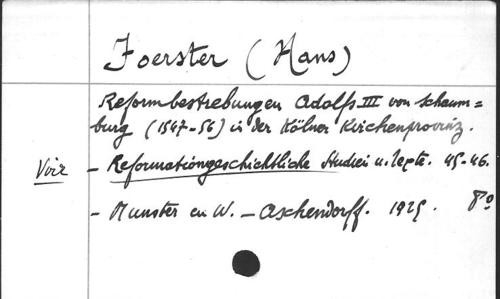 Foerster (Hans)
Reformbestrebungen Adolfs III von Schaum=
burg (1547-56) in der Kölner Kirchenprovinz.
Voir - Reformationsgeschichtliche Studien u. Texte. 45-46.
- Munster en W. - Aschendorff. 1925. 8º